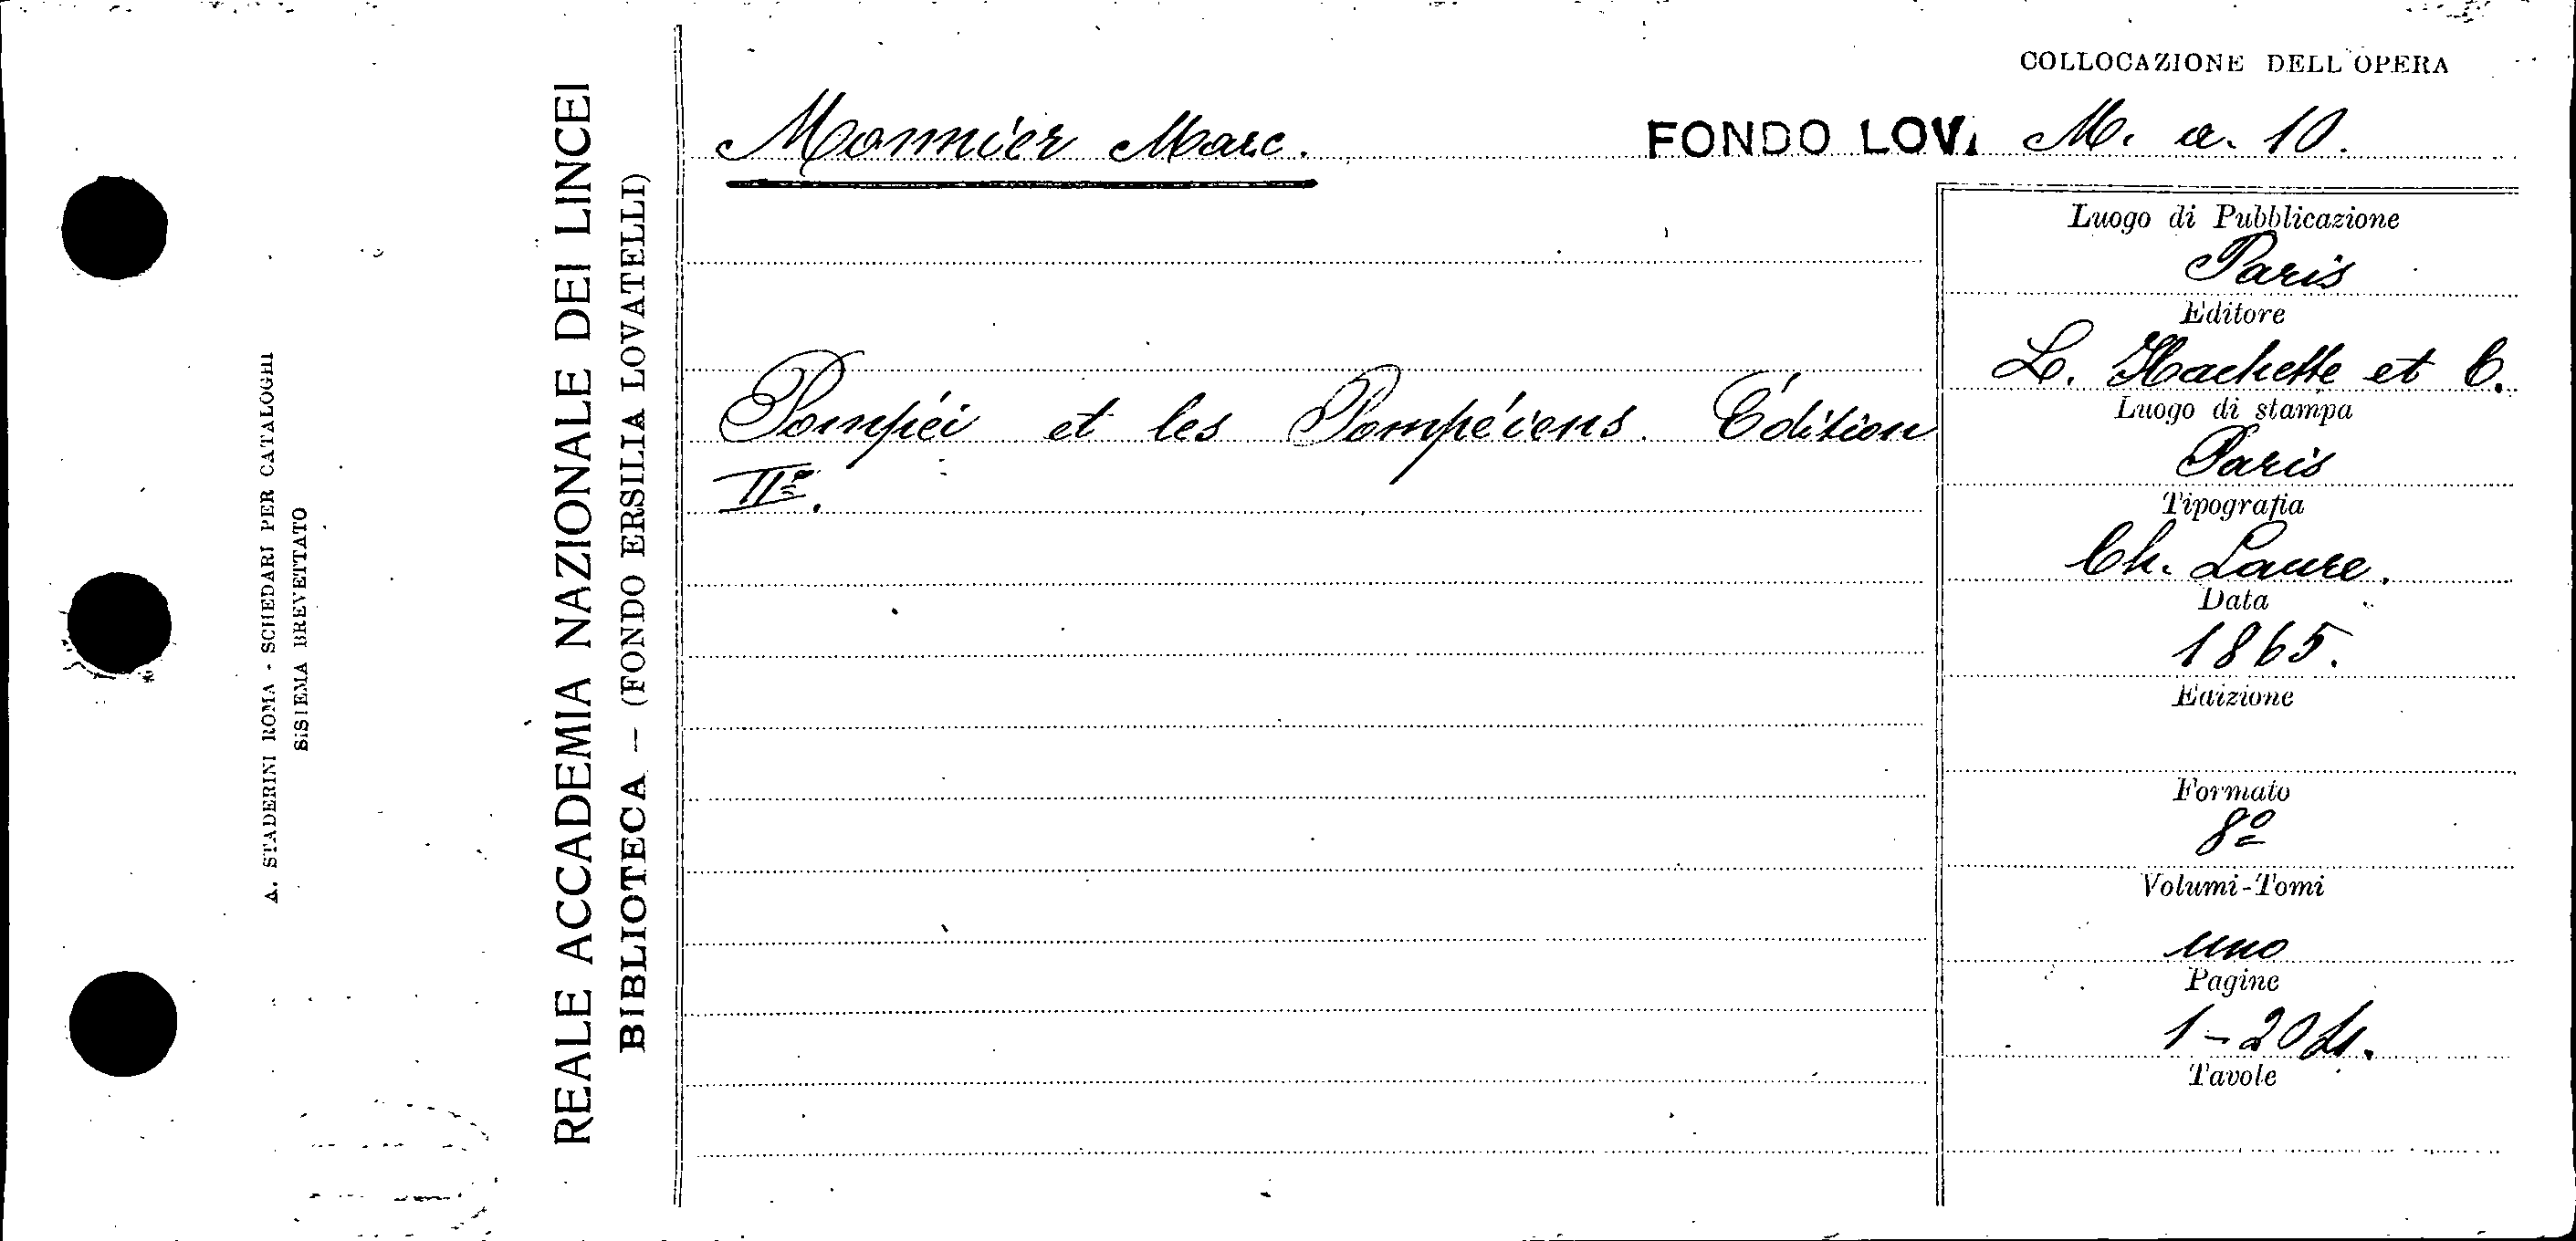 COLLOCAZIONE DELL'OPERA
Monnier Marc. FONDO LOV. M. a. 10.
Pompéi et les Pompéiens. Édition
IIe.
Luogo di Pubblicazione
Paris
Editore
L. Hachette et C.
Luogo di stampa
Paris
Tipografia
Ch. Laure.
Data
1865.
Edizione
Formato
8º
Volumi-Tomi
uno
Pagine
Tavole
REALE ACCADEMIA NAZIONALE DEI LINCEI
BIBLIOTECA — (FONDO ERSILIA LOVATELLI)
A. STADERINI ROMA - SCHEDARI PER CATALOGHI
SISTEMA BREVETTATO